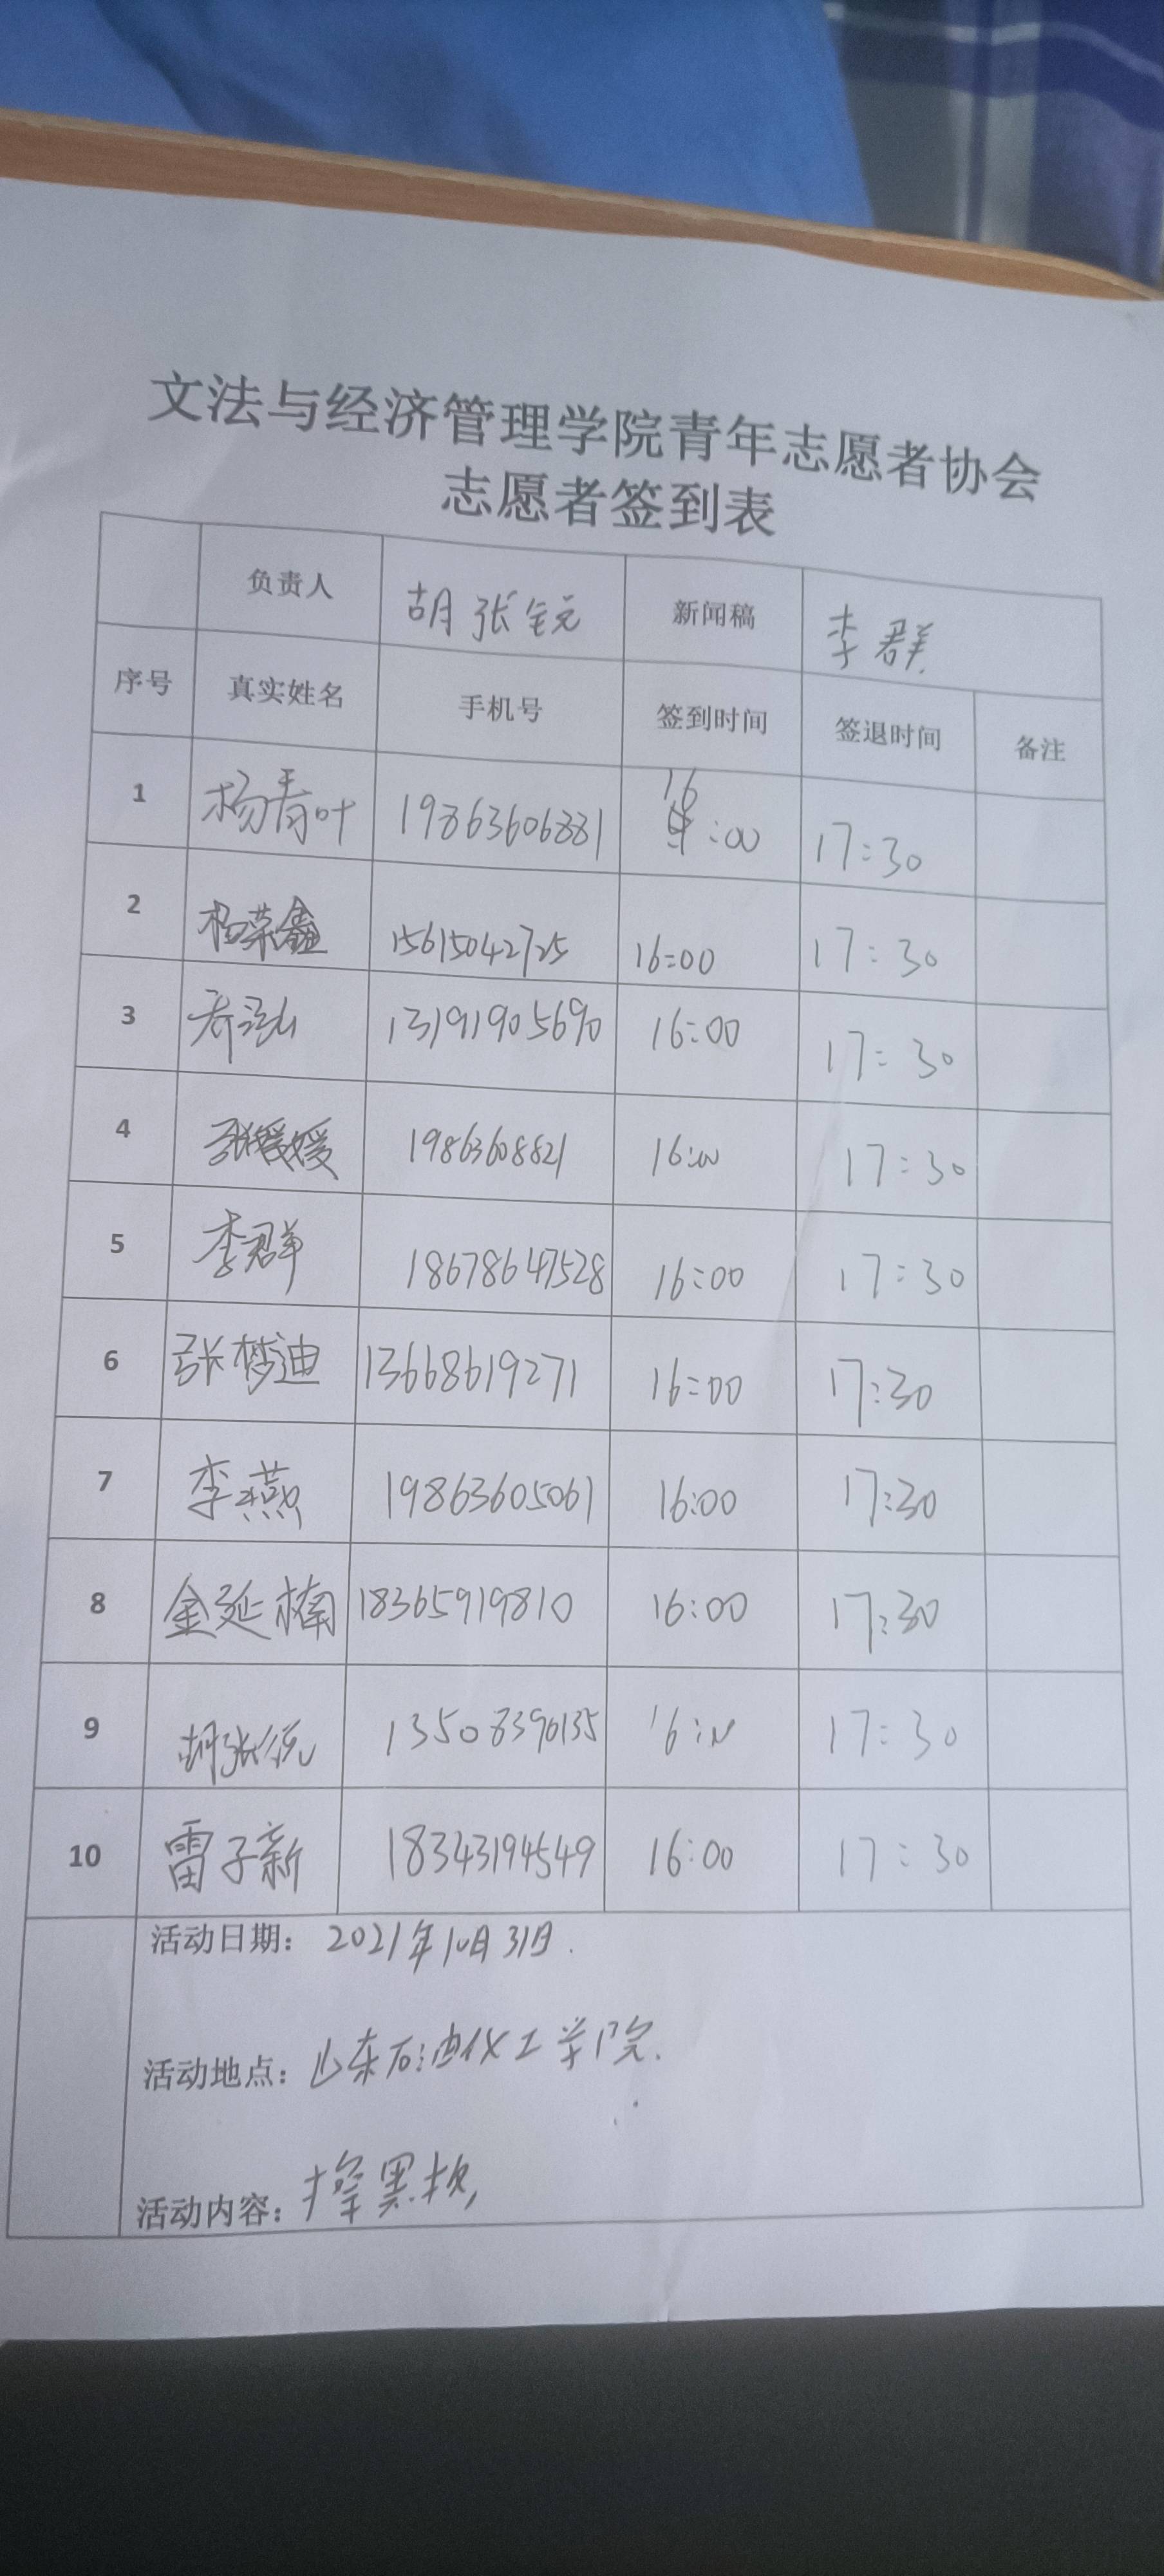 文法与经济管理学院青年志愿者协会
志愿者签到表
负责人 胡张钰 新闻稿 李群
序号 真实姓名 手机号 签到时间 签退时间 备注
1 杨青叶 19863606881 16:00 17:30
2 杨荣鑫 15615042725 16:00 17:30
3 乔泓 13191905690 16:00 17:30
4 张媛媛 19863608821 16:00 17:30
5 李群 18678647528 16:00 17:30
6 张梦迪 13668619271 16:00 17:30
7 李燕 19863605061 16:00 17:30
8 金延楠 18365919810 16:00 17:30
9 胡张 13508396135 16:00 17:30
10 雷子新 18343194549 16:00 17:30
活动日期: 2021年10月31日.
活动地点: 山东石油化工学院.
活动内容: 擦黑板